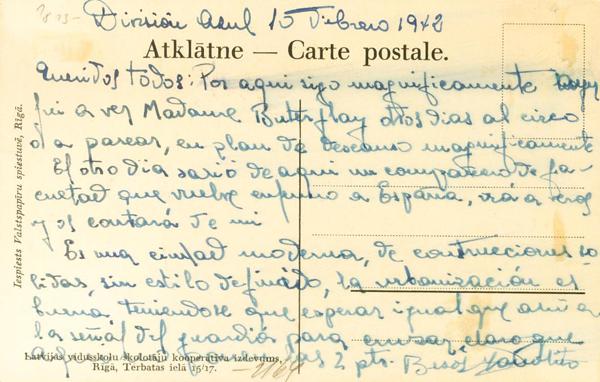 División Azul 15 Febrero 1942
Atklātne — Carte postale.
Queridos todos: Por aqui sigo magnificamente
fui a ver Madame Buterflay otros dias al circo
o a pasear, en plan de descanso magnificamente
El otro dia salió de aqui un compañero de fa-
cultad que vuelve enfermo a España, irá a veros
y os contará de mi
Es una ciudad moderna, de construcciones so-
lidas, sin estilo definido, la urbanización es
buena teniendose que esperar igual que ahi a
la señal del guardia para cruzar, claro que
2 pts. Besos
Iespiests Valstspapīru spiestuvē, Rīgā.
Latvijas vidusskolu skolotāju kooperatīva izdevums,
Rīgā, Tērbatas ielā 15/17.